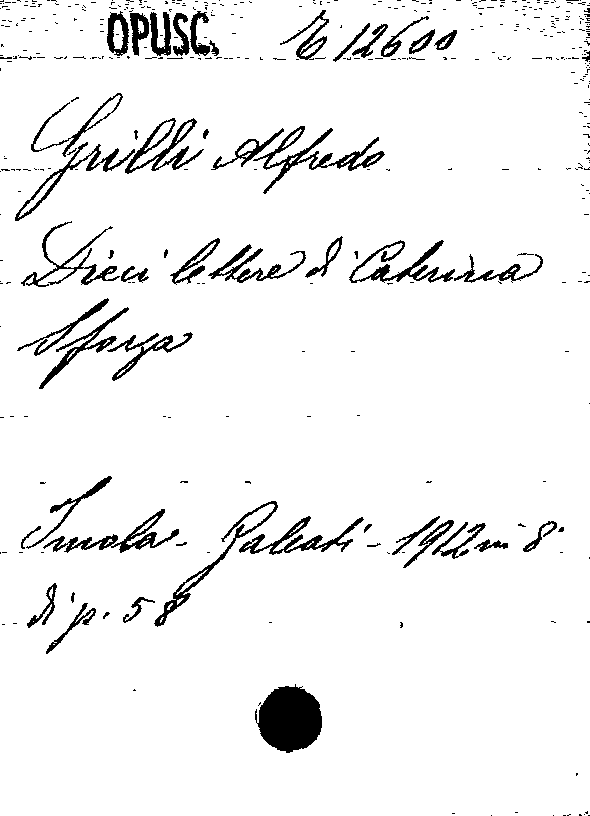 OPUSC. E 12600
Grilli Alfredo
Dieci lettere di Caterina
Sforza
Imola - Galeati - 1912 in 8°
di p. 58